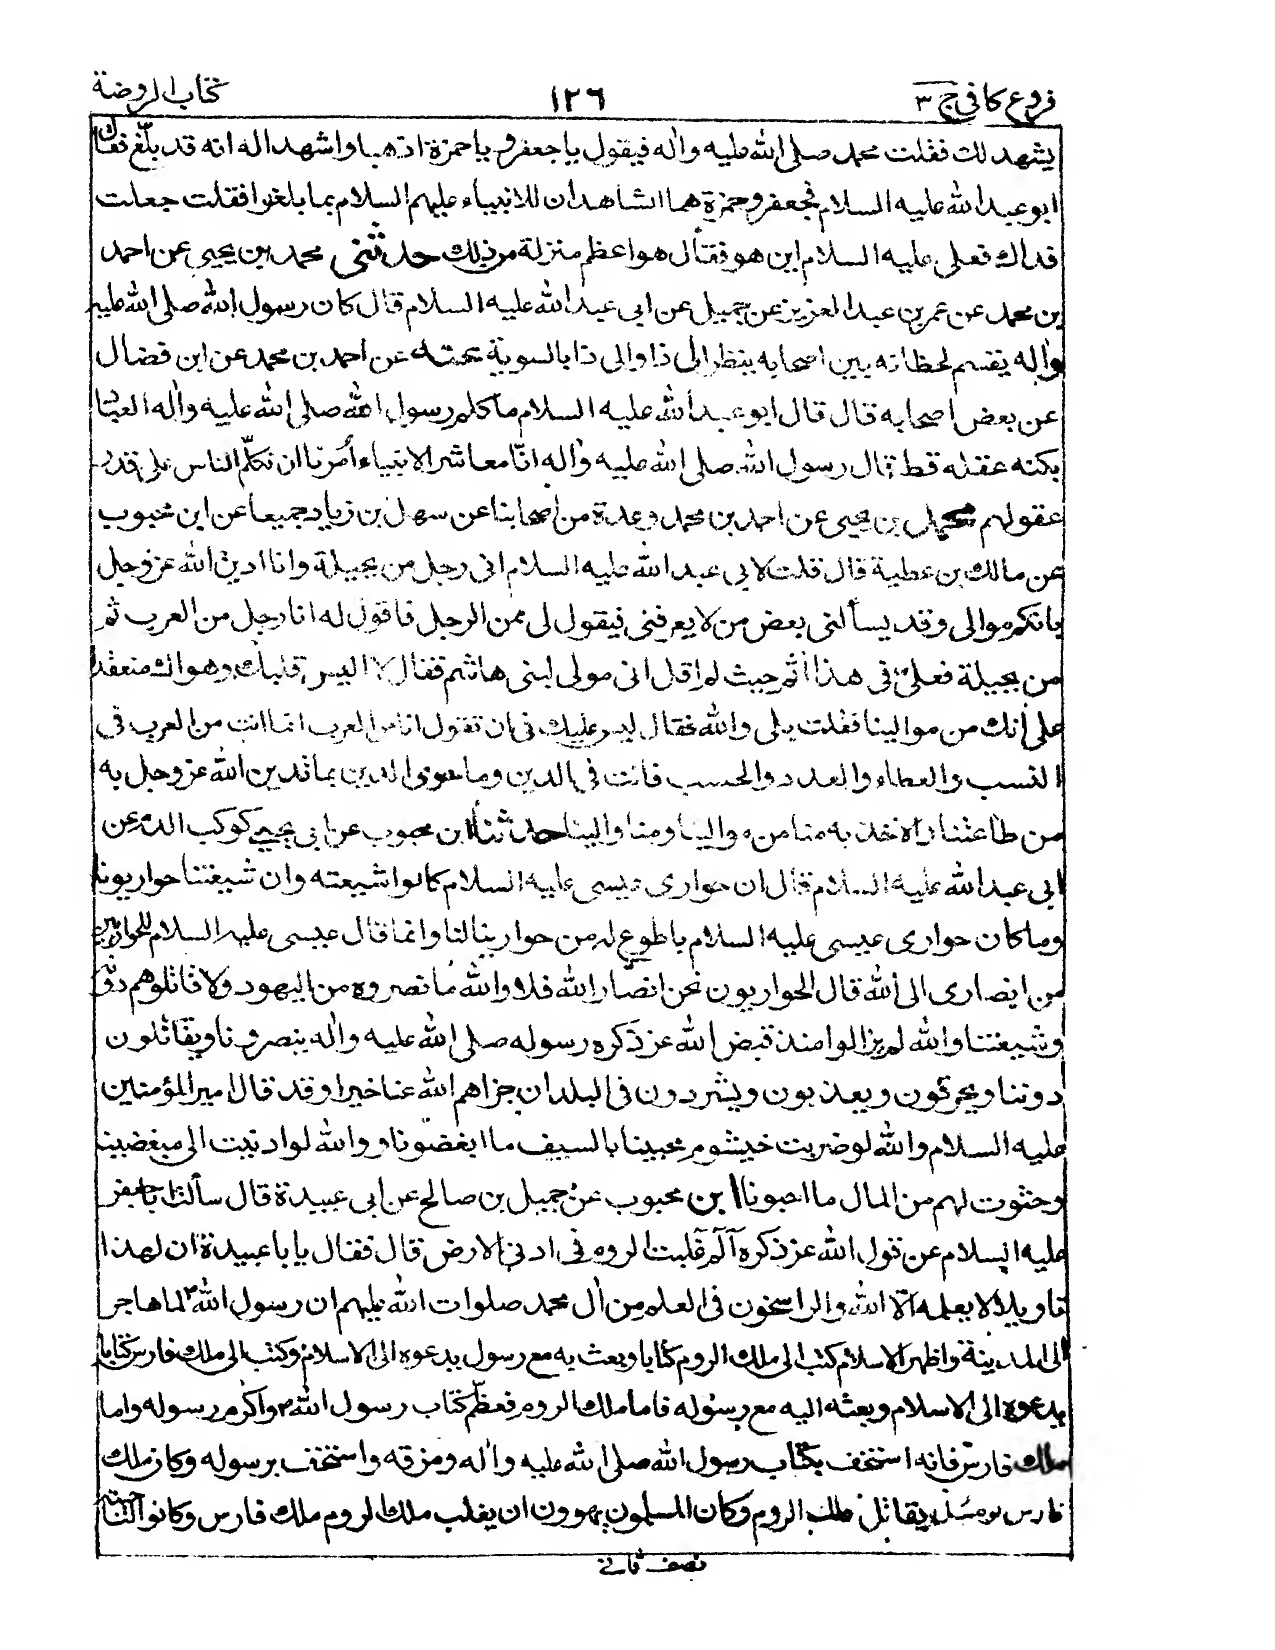 فروع كافى ج ٣
١٢٦
كتاب الروضة
يشهد لك فقلت محمد صلى الله عليه واله فيقول يا جعفر و يا حمزة اذهبا واشهدا له انه قد بلّغ فقال
ابو عبد الله عليه السلام فجعفر وحمزة هما الشاهدان للانبياء عليهم السلام بما بلغوا فقلت جعلت
فداك فعلى عليه السلام اين هو فقال هو اعظم منزلة من ذلك حدثنى محمد بن يحيى عن احمد
بن محمد عن عمر بن عبد العزيز عن جميل عن ابى عبد الله عليه السلام قال كان رسول الله صلى الله عليه
واله يقسم لحظاته بين اصحابه ينظر الى ذا والى ذا بالسوية عنه عن احمد بن محمد عن ابن فضال
عن بعض اصحابه قال قال ابو عبد الله عليه السلام ما كلم رسول الله صلى الله عليه واله العباد
بكنه عقله قط قال رسول الله صلى الله عليه واله انّا معاشر الانبياء اُمرنا ان نكلّم الناس على قدر
عقولهم محمد بن يحيى عن احمد بن محمد وعدة من اصحابنا عن سهل بن زياد جميعا عن ابن محبوب
عن مالك بن عطية قال قلت لابى عبد الله عليه السلام انى رجل من بجيلة وانا ادين الله عز وجل
بانكم موالى وقد يسألنى بعض من لا يعرفنى فيقول لى ممن الرجل فاقول له انا رجل من العرب ثم
من بجيلة فعلىّ فى هذا اثم حيث لم اقل انى مولى لبنى هاشم فقال لا اليس قلبك وهواك منعقدا
على انك من موالينا فقلت بلى والله فقال ليس عليك فى ان تقول انا من العرب انما انت من العرب فى
النسب والعطاء والعدد والحسب فانت فى الدين وما حوى الدين بما تدين الله عز وجل به
من طاعتنا والاخذ به منا موالينا ومنا والينا حدثنا ابن محبوب عن ابى يحيى كوكب الدم عن
ابى عبد الله عليه السلام قال ان حوارى عيسى عليه السلام كانوا شيعته وان شيعتنا حواريونا
وما كان حوارى عيسى عليه السلام باطوع له من حوارينا لنا وانما قال عيسى عليه السلام للحواريين
من انصارى الى الله قال الحواريون نحن انصار الله فلا والله ما نصروه من اليهود ولا قاتلوهم دونه
وشيعتنا والله لم يزالوا منذ قبض الله عز ذكره رسوله صلى الله عليه واله ينصرونا ويقاتلون
دوننا ويحرقون ويعذبون ويشردون فى البلدان جزاهم الله عنا خيرا وقد قال امير المؤمنين
عليه السلام والله لو ضربت خيشوم محبينا بالسيف ما ابغضونا ووالله لو ادنيت الى مبغضينا
وحثوت لهم من المال ما احبونا ابن محبوب عن جميل بن صالح عن ابى عبيدة قال سألت ابا جعفر
عليه السلام عن قول الله عز ذكره الم غلبت الروم فى ادنى الارض قال فقال يا با عبيدة ان لهذا
تاويلا لا يعلمه الا الله والراسخون فى العلم من ال محمد صلوات الله عليهم ان رسول الله ص لما هاجر
الى المدينة واظهر الاسلام كتب الى ملك الروم كتابا وبعث به مع رسول يدعوه الى الاسلام وكتب الى ملك فارس كتابا
يدعوه الى الاسلام وبعثه اليه مع رسوله فاما ملك الروم فعظّم كتاب رسول الله ص واكرم رسوله واما
ملك فارس فانه استخف بكتاب رسول الله صلى الله عليه واله ومزقه واستخف برسوله وكان ملك
فارس يومئذ يقاتل ملك الروم وكان المسلمون يهوون ان يغلب ملك الروم ملك فارس وكانوا لناحيته
نصف ثانى